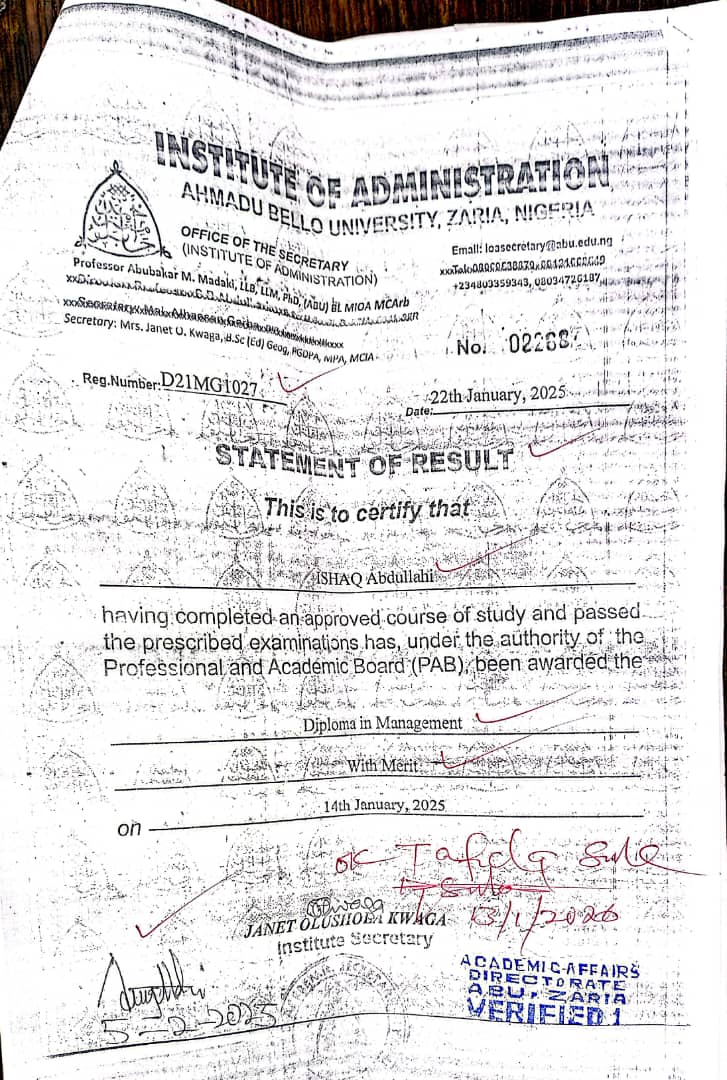 INSTITUTE OF ADMINISTRATION
AHMADU BELLO UNIVERSITY, ZARIA, NIGERIA
OFFICE OF THE SECRETARY
(INSTITUTE OF ADMINISTRATION)
Professor Abubakar M. Madaki, LLB, LLM, PhD, (ABU) BL MIOA MCArb
Secretary: Mrs. Janet O. Kwaga, B.Sc (Ed) Geog, PGDPA, MPA, MCIA
Email: ioasecretary@abu.edu.ng
+234803359343, 08034726187
No. 02268
Reg.Number: D21MG1027
Date: 22th January, 2025
STATEMENT OF RESULT
This is to certify that
ISHAQ Abdullahi
having completed an approved course of study and passed
the prescribed examinations has, under the authority of the
Professional and Academic Board (PAB), been awarded the
Diploma in Management
With Merit
on 14th January, 2025
OK Tafida Sule
13/1/2026
JANET OLUSHOLA KWAGA
Institute Secretary
5-2-2025
ACADEMIC AFFAIRS
DIRECTORATE
ABU, ZARIA
VERIFIED 1